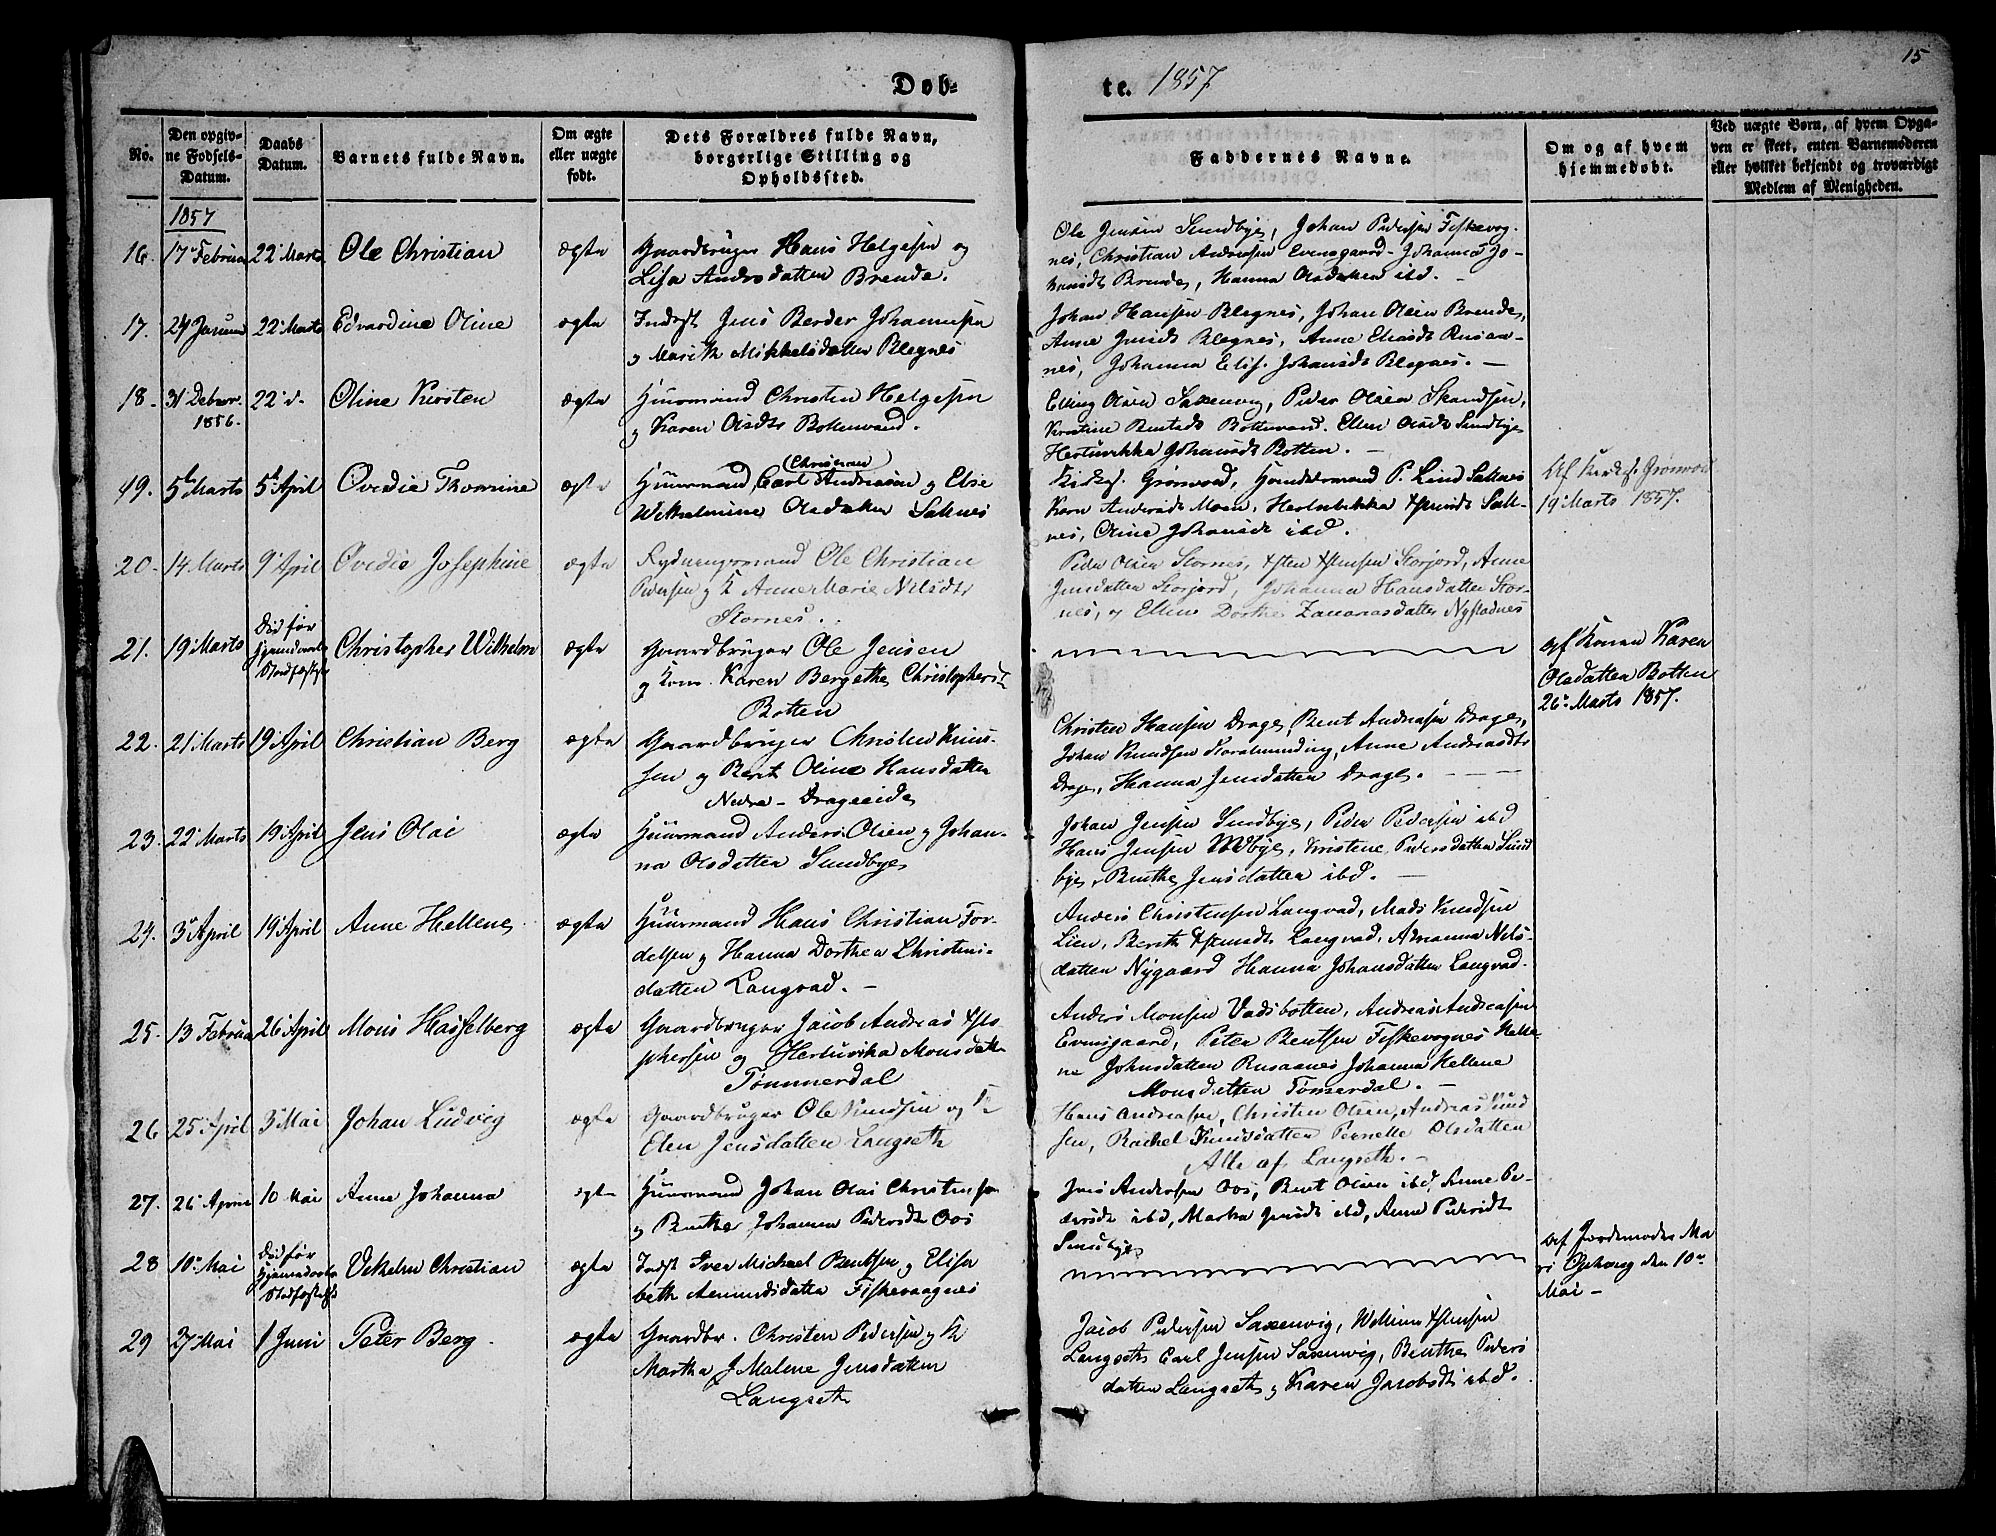 15
Døb-
te. 1857
No.
Den opgiv-
ne Fødsels-
Datum.
Daabs
Datum.
Barnets fulde Navn.
Om ægte
eller uægte
født.
Dets Forældres fulde Navn,
borgerlige Stilling og
Opholdssted.
Faddernes Navne.
Om og af hvem
hjemmedøbt.
Ved uægte Børn, af hvem Opga-
ven er skeet, enten Barnemoderen
eller hvilket bekjendt og troværdigt
Medlem af Menigheden.
1857
16. 17 Februar 22 Marts Ole Christian ægte Gaardbruger Hans Helgesen og
Lisa Andrsdatter Brende.
Ole Jensen Sundbye, Johan Pedersen Fiskevog-
nes, Christian Andreasen Evensgaard - Johanna Jo-
hansdt Brende, Hanna Olsdatter ibd.
17. 24 Januar 22 Marts Edvardine Oline ægte Inderst Jens Berder Johannesen
og Marith Mikkelsdatter Blegnes
Johan Hansen Blegnes, Johan Olsen Brende,
Anne Jensdt Blegnes, Anne Eliasdt Rusaa-
nes, Johanna Elis. Johansdt Blegnes. -
18. 31 Decbr.
1856.
22 d. Oline Kirsten ægte Huusmand Christen Helgesen
og Karen Olsdtr Bottenvand.
Elling Olsen Saxenvig, Peder Olsen Skandsen,
Kirstine Bentsdt Bottenvand. Ellen Olsdt Sundbye
Hertuvikka Johansdt Botten. -
19. 5te Marts 5te April Ovedie Thomine ægte Huusmand Carl (Christian) Andreasen og Else
Wilhelmine Olsdatter Saltnes
Kirkes. Grønvold, Handelsmand P. Lind Saltnes
Karn Andersdt Moen, Hertubikka Estensdt Salt-
nes, Oline Johansdt ibd.
Af Kirkes. Grønvold
19 Marts 1857.
20. 14 Marts 9 April Ovedie Josephine ægte Rydningsmand Ole Christian
Pedersen og K Anne Marie Nilsdtr
Stornes.
Peder Olsen Stornes, Esten Estensen Storjord, Anne
Jensdatter Storjord, Johanna Hansdatter Stor-
nes, og Ellen Dorthe Zakariasdatter Nystadnes
21. 19 Marts Død før
Hjemmedaabs
Stadfæstelse
Christopher Wilhelm ægte Gaardbruger Ole Jensen
og Kone Karen Bergethe Christophersdt
Botten
af Konen Karen
Olsdatter Botten
26 Marts 1857.
22. 21 Marts 19 April Christian Berg ægte Gaardbruger Christen Knud-
sen og Berit Oline Hansdatter
Nedre - Drageeide
Christen Hansen Drage, Bent Andreasen Drage,
Johan Knudsen Storalmending, Anne Andreasdtr
Drage, Hanna Jensdatter Drage.
23. 22 Marts 19 April Jens Olai ægte Huusmand Anders Olsen og Johan-
na Olsdatter Sundbye
Johan Jensen Sundbye, Peder Pedersen ibd
Hans Jensen Medbye, Kristene Pedersdatter Sund
bye, Benthe Jensdatter ibd. -
24. 3 April 19 April Anne Hellene ægte Huusmand Hans Christian For-
delsen og Hanna Dorthea Christens-
datter Langvad. -
Anders Christensen Langvad, Mads Knudsen
Lien, Berith Amundt Langvad, Adrianna Nils-
datter Nygaard Hanna Johansdatter Langvad.
25. 13 Februar 26 April Mons Hasselberg ægte Gaardbruger Jacob Andreas Sto-
phersen og Hertuvika Monsdatter
Tømmerdal
Anders Monsen Vadsbotten, Andreas Andreasen
Evensgaard, Peter Bentsen Fiskevognes Helle-
ne Johnsdatter Rusaanes Johanna Hellene
Monsdatter Tømerdal. -
26 25 April 3 Mai Johan Ludvig ægte Gaardbruger Ole Knudsen og K
Elen Jensdatter Langseth
Hans Andreasen, Christen Olsen, Andreas Knud
sen, Rachel Knudsdatter Pernelle Olsdatter
Alle af Langseth. -
27. 26 April 10 Mai Anne Johanna ægte Huusmand Johan Olai Christensen
og Benthe Johanna Pedersdtr Oos
Jens Andersen Oos, Bent Olsen ibd, Anne Pe-
dersdt ibd, Martha Jensdt ibd, Anne Pedersdt
Sundbye
28 10 Mai Død før
Hjemmedaabs
Stadfæstelse
Vihelm Christian ægte Indst Iver Michael Bentsen og Elisa
beth Amundsdatter Fiskevaagnes
af Jordemoder Ma
ri Ophoug den 10de
Mai -
29 27 Mai 1 Juni Peter Berg ægte Gaardbr. Christen Pedersen og K
Martha J Malene Jensdatter
Langseth
Jacob Pedersen Saxenvig, William Estensen
Langseth Carl Jensen Saxenvig, Benthe Peders
datter Langseth og Karen Jacobsdt ibd.